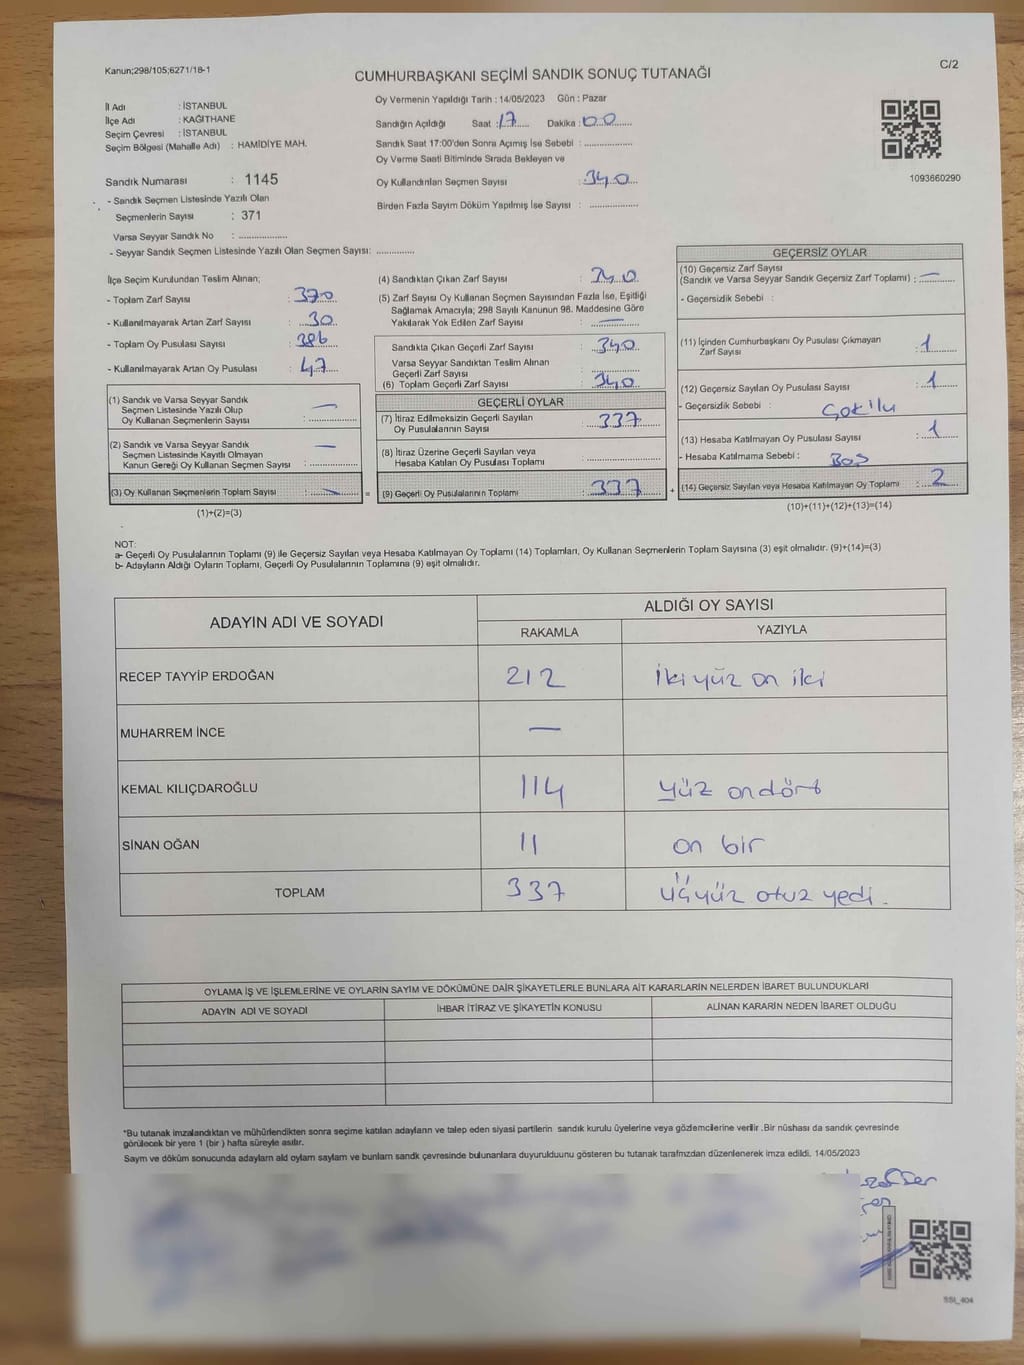 Kanun;298/105;6271/18-1
C/2
CUMHURBAŞKANI SEÇİMİ SANDIK SONUÇ TUTANAĞI
İl Adı : İSTANBUL
İlçe Adı : KAĞITHANE
Seçim Çevresi : İSTANBUL
Seçim Bölgesi (Mahalle Adı) : HAMİDİYE MAH.
Sandık Numarası : 1145
- Sandık Seçmen Listesinde Yazılı Olan
Seçmenlerin Sayısı : 371
Varsa Seyyar Sandık No : ..................
- Seyyar Sandık Seçmen Listesinde Yazılı Olan Seçmen Sayısı: ..............
Oy Vermenin Yapıldığı Tarih : 14/05/2023 Gün : Pazar
Sandığın Açıldığı Saat : 17 Dakika : 00
Sandık Saat 17:00'den Sonra Açımış İse Sebebi : ..................
Oy Verme Saati Bitiminde Sırada Bekleyen ve
Oy Kullandırılan Seçmen Sayısı : 340
Birden Fazla Sayım Döküm Yapılmış İse Sayısı : ..................
1093660290
İlçe Seçim Kurulundan Teslim Alınan;
- Toplam Zarf Sayısı : 370
- Kullanılmayarak Artan Zarf Sayısı : 30
- Toplam Oy Pusulası Sayısı : 386
- Kullanılmayarak Artan Oy Pusulası : 47
(1) Sandık ve Varsa Seyyar Sandık
Seçmen Listesinde Yazılı Olup
Oy Kullanan Seçmenlerin Sayısı : —
(2) Sandık ve Varsa Seyyar Sandık
Seçmen Listesinde Kayıtlı Olmayan
Kanun Gereği Oy Kullanan Seçmen Sayısı : —
(3) Oy Kullanan Seçmenlerin Toplam Sayısı : — =
(1)+(2)=(3)
(4) Sandıktan Çıkan Zarf Sayısı : 340
(5) Zarf Sayısı Oy Kullanan Seçmen Sayısından Fazla İse, Eşitliği
Sağlamak Amacıyla; 298 Sayılı Kanunun 98. Maddesine Göre
Yakılarak Yok Edilen Zarf Sayısı : —
Sandıkta Çıkan Geçerli Zarf Sayısı : 340
Varsa Seyyar Sandıktan Teslim Alınan
Geçerli Zarf Sayısı : ..................
(6) Toplam Geçerli Zarf Sayısı : 340
GEÇERLİ OYLAR
(7) İtiraz Edilmeksizin Geçerli Sayılan
Oy Pusulalarının Sayısı : 337
(8) İtiraz Üzerine Geçerli Sayılan veya
Hesaba Katılan Oy Pusulası Toplamı : ..................
(9) Geçerli Oy Pusulalarının Toplamı : 337 +
GEÇERSİZ OYLAR
(10) Geçersiz Zarf Sayısı
(Sandık ve Varsa Seyyar Sandık Geçersiz Zarf Toplamı) : —
- Geçersizlik Sebebi :
(11) İçinden Cumhurbaşkanı Oy Pusulası Çıkmayan
Zarf Sayısı : 1
(12) Geçersiz Sayılan Oy Pusulası Sayısı : 1
- Geçersizlik Sebebi :
(13) Hesaba Katılmayan Oy Pusulası Sayısı : 1
- Hesaba Katılmama Sebebi : Boş
(14) Geçersiz Sayılan veya Hesaba Katılmayan Oy Toplamı : 2
(10)+(11)+(12)+(13)=(14)
NOT:
a- Geçerli Oy Pusulalarının Toplamı (9) ile Geçersiz Sayılan veya Hesaba Katılmayan Oy Toplamı (14) Toplamları, Oy Kullanan Seçmenlerin Toplam Sayısına (3) eşit olmalıdır. (9)+(14)=(3)
b- Adayların Aldığı Oyların Toplamı, Geçerli Oy Pusulalarının Toplamına (9) eşit olmalıdır.
ADAYIN ADI VE SOYADI
ALDIĞI OY SAYISI
RAKAMLA YAZIYLA
RECEP TAYYİP ERDOĞAN 212 İki yüz on iki
MUHARREM İNCE —
KEMAL KILIÇDAROĞLU 114 yüz ondört
SİNAN OĞAN 11 on bir
TOPLAM 337 üçyüz otuz yedi.
OYLAMA İŞ VE İŞLEMLERİNE VE OYLARIN SAYIM VE DÖKÜMÜNE DAİR ŞİKAYETLERLE BUNLARA AİT KARARLARIN NELERDEN İBARET BULUNDUKLARI
ADAYIN ADI VE SOYADI İHBAR İTİRAZ VE ŞİKAYETİN KONUSU ALINAN KARARIN NEDEN İBARET OLDUĞU
*Bu tutanak imzalandıktan ve mühürlendikten sonra seçime katılan adayların ve talep eden siyasi partilerin sandık kurulu üyelerine veya gözlemcilerine verilir .Bir nüshası da sandık çevresinde
görülecek bir yere 1 (bir ) hafta süreyle asılır.
Sayım ve döküm sonucunda adayların ald oyların sayların ve bunların sandk çevresinde bulunanlara duyurulduunu gösteren bu tutanak tarafmzdan düzenlenerek imza edildi. 14/05/2023
SSI_404